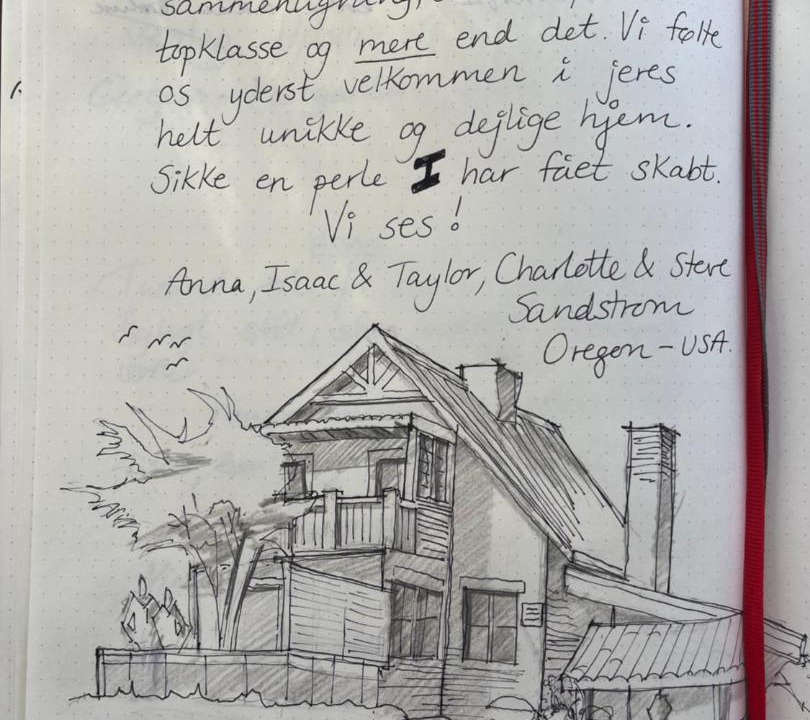 topklasse og mere end det. Vi følte
os yderst velkommen i jeres
helt unikke og dejlige hjem.
Sikke en perle I har fået skabt.
Vi ses!
Anna, Isaac & Taylor, Charlotte & Steve
Sandstrom
Oregon - USA.